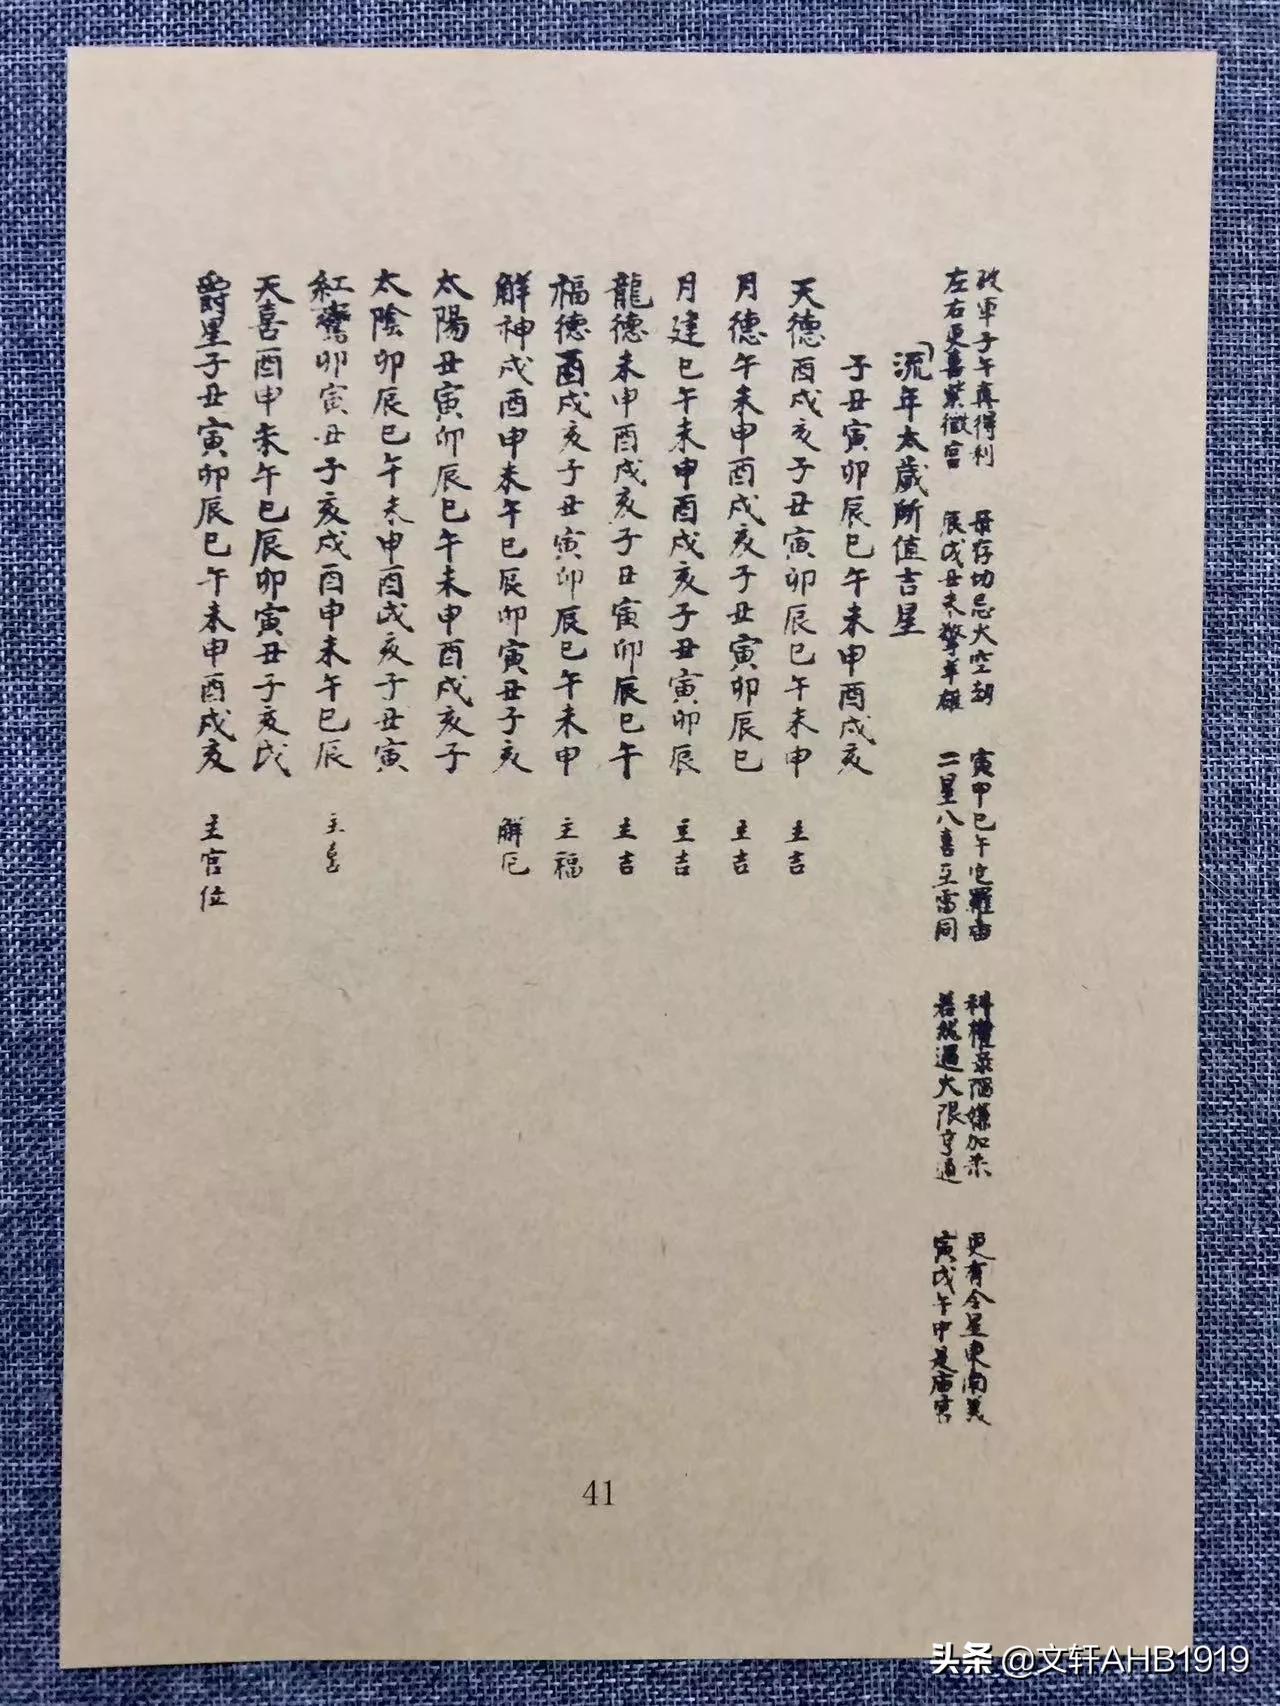 破軍子午真得利 最存切忌火空劫 寅申巳午宅羅宙 科權祿陷嫌加杀 更有令星東南美
左右更喜紫微宮 辰戌丑未擎羊雄 二星八喜互雷同 若然遇大限亨通 寅戌午申是廟宮
「流年太歲所值吉星
子丑寅卯辰巳午未申酉戌亥
天德酉戌亥子丑寅卯辰巳午未申 主吉
月德午未申酉戌亥子丑寅卯辰巳 主吉
月建巳午未申酉戌亥子丑寅卯辰 主吉
龍德未申酉戌亥子丑寅卯辰巳午 主吉
福德酉戌亥子丑寅卯辰巳午未申 主福
解神戌酉申未午巳辰卯寅丑子亥 解厄
太陽丑寅卯辰巳午未申酉戌亥子
太陰卯辰巳午未申酉戌亥子丑寅
紅鸞卯寅丑子亥戌酉申未午巳辰 主喜
天喜酉申未午巳辰卯寅丑子亥戌
爵星子丑寅卯辰巳午未申酉戌亥 主官位
41
头条 @文轩AHB1919